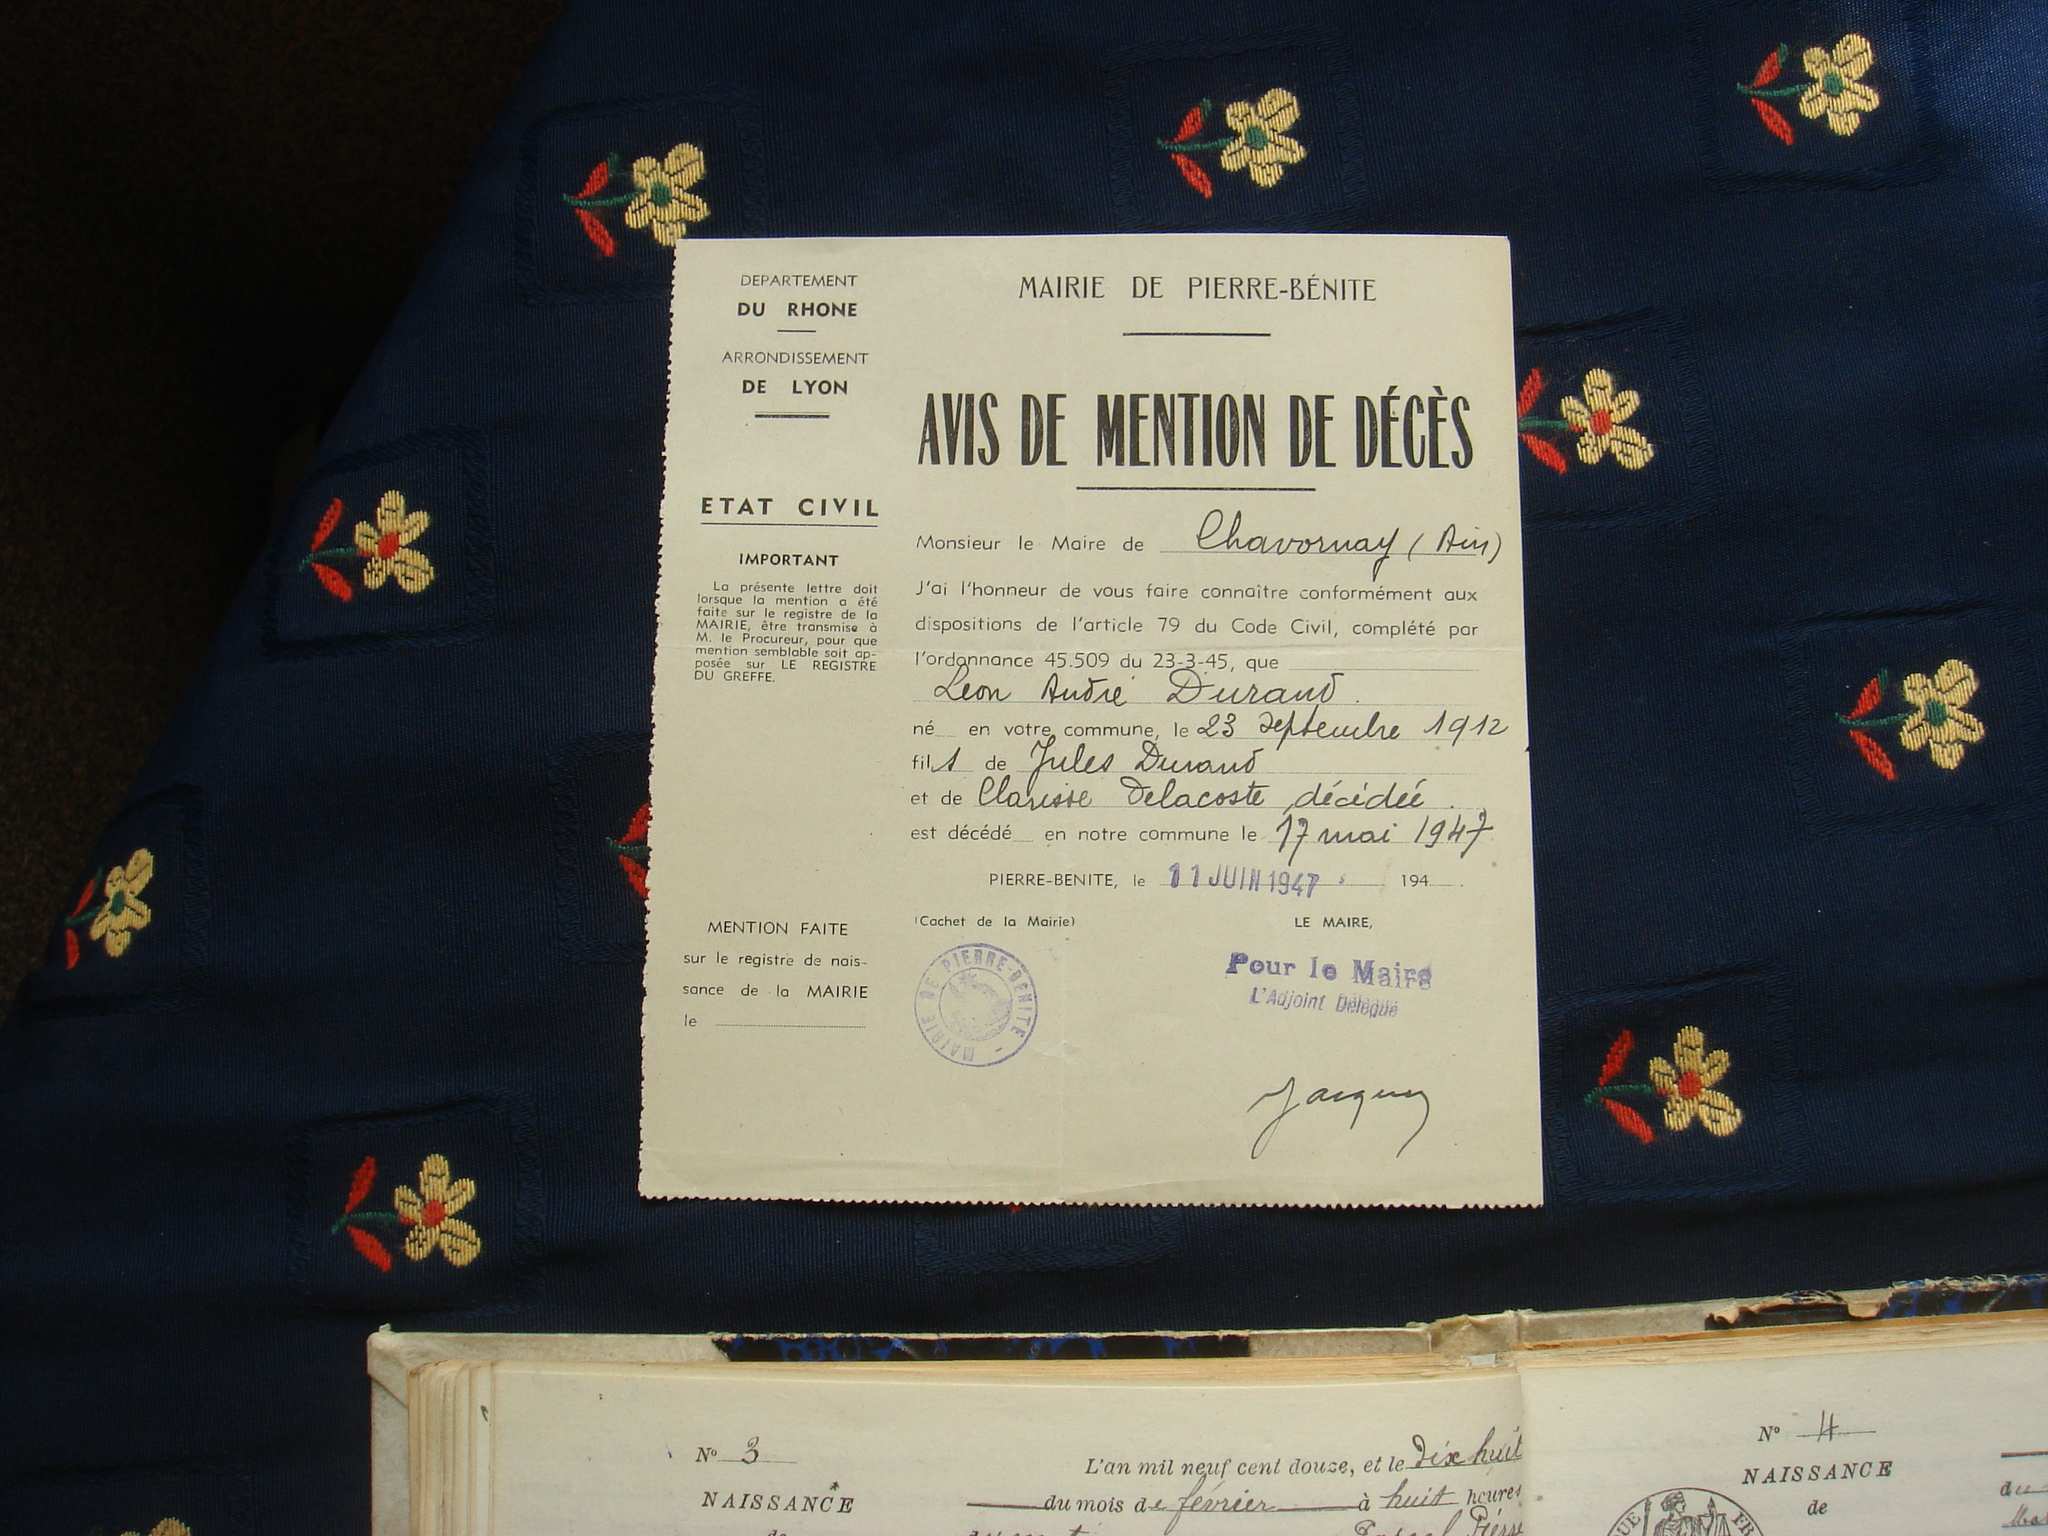 DEPARTEMENT
DU RHONE
ARRONDISSEMENT
DE LYON
ETAT CIVIL
IMPORTANT
La présente lettre doit
lorsque la mention a été
faite sur le registre de la
MAIRIE, être transmise à
M. le Procureur, pour que
mention semblable soit ap-
posée sur LE REGISTRE
DU GREFFE.
MENTION FAITE
sur le registre de nais-
sance de la MAIRIE
le
MAIRIE DE PIERRE-BÉNITE
AVIS DE MENTION DE DÉCÈS
Monsieur le Maire de Chavornay (Ain)
J'ai l'honneur de vous faire connaître conformément aux
dispositions de l'article 79 du Code Civil, complété par
l'ordonnance 45.509 du 23-3-45, que
Léon André Durand.
né en votre commune, le 23 septembre 1912
fils de Jules Durand
et de Clarisse Delacoste, décédée.
est décédé en notre commune le 17 mai 1947
PIERRE-BENITE, le 11 JUIN 1947 194
(Cachet de la Mairie)
LE MAIRE,
MAIRIE DE PIERRE-BÉNITE
Pour le Maire
L'Adjoint Délégué
N° 3
NAISSANCE
de
L'an mil neuf cent douze, et le dix huit
du mois de février à huit heures
Pierre
N° 4
NAISSANCE
de